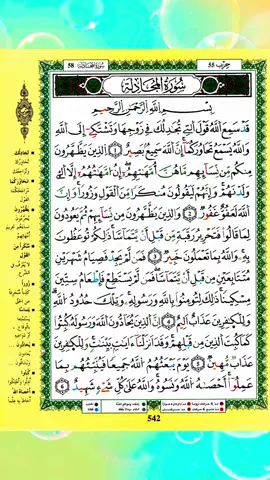 حزب 55
سورة المجادلة 58
سُورَةُ المُجَادلَة
بِسْمِ اللَّهِ الرَّحْمَٰنِ الرَّحِيمِ
قَدْ سَمِعَ اللَّهُ قَوْلَ الَّتِي تُجَٰدِلُكَ فِي زَوْجِهَا وَتَشْتَكِي إِلَى اللَّهِ
وَاللَّهُ يَسْمَعُ تَحَاوُرَكُمَا إِنَّ اللَّهَ سَمِيعٌ بَصِيرٌ ١ الَّذِينَ يُظَٰهِرُونَ
مِنكُم مِّن نِّسَآئِهِم مَّا هُنَّ أُمَّهَٰتِهِمْ إِنْ أُمَّهَٰتُهُمْ إِلَّا الَّٰٓـِٔي
وَلَدْنَهُمْ وَإِنَّهُمْ لَيَقُولُونَ مُنكَرًا مِّنَ الْقَوْلِ وَزُورًا وَإِنَّ
اللَّهَ لَعَفُوٌّ غَفُورٌ ٢ وَالَّذِينَ يُظَٰهِرُونَ مِن نِّسَآئِهِمْ ثُمَّ يَعُودُونَ
لِمَا قَالُوا فَتَحْرِيرُ رَقَبَةٍ مِّن قَبْلِ أَن يَتَمَآسَّا ذَٰلِكُمْ تُوعَظُونَ
بِهِ وَاللَّهُ بِمَا تَعْمَلُونَ خَبِيرٌ ٣ فَمَن لَّمْ يَجِدْ فَصِيَامُ شَهْرَيْنِ
مُتَتَابِعَيْنِ مِن قَبْلِ أَن يَتَمَآسَّا فَمَن لَّمْ يَسْتَطِعْ فَإِطْعَامُ سِتِّينَ
مِسْكِينًا ذَٰلِكَ لِتُؤْمِنُوا بِاللَّهِ وَرَسُولِهِ وَتِلْكَ حُدُودُ اللَّهِ
وَلِلْكَٰفِرِينَ عَذَابٌ أَلِيمٌ ٤ إِنَّ الَّذِينَ يُحَآدُّونَ اللَّهَ وَرَسُولَهُ كُبِتُوا
كَمَا كُبِتَ الَّذِينَ مِن قَبْلِهِمْ وَقَدْ أَنزَلْنَآ ءَايَٰتٍ بَيِّنَٰتٍ وَلِلْكَٰفِرِينَ
عَذَابٌ مُّهِينٌ ٥ يَوْمَ يَبْعَثُهُمُ اللَّهُ جَمِيعًا فَيُنَبِّئُهُم بِمَا
عَمِلُوا أَحْصَىٰهُ اللَّهُ وَنَسُوهُ وَاللَّهُ عَلَىٰ كُلِّ شَيْءٍ شَهِيدٌ ٦
542